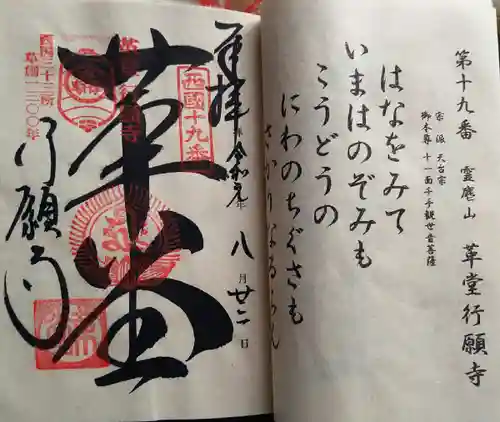 第十九番 霊麀山 革堂行願寺
宗派 天台宗
御本尊 十一面千手観世音菩薩
はなをみて
いまはのぞみも
こうどうの
にわのちぐさも
さかりなるらん
奉拝 令和元年 八月廿二日
西國十九番
革堂
行願寺
西国三十三所
草創一三〇〇年
行願寺